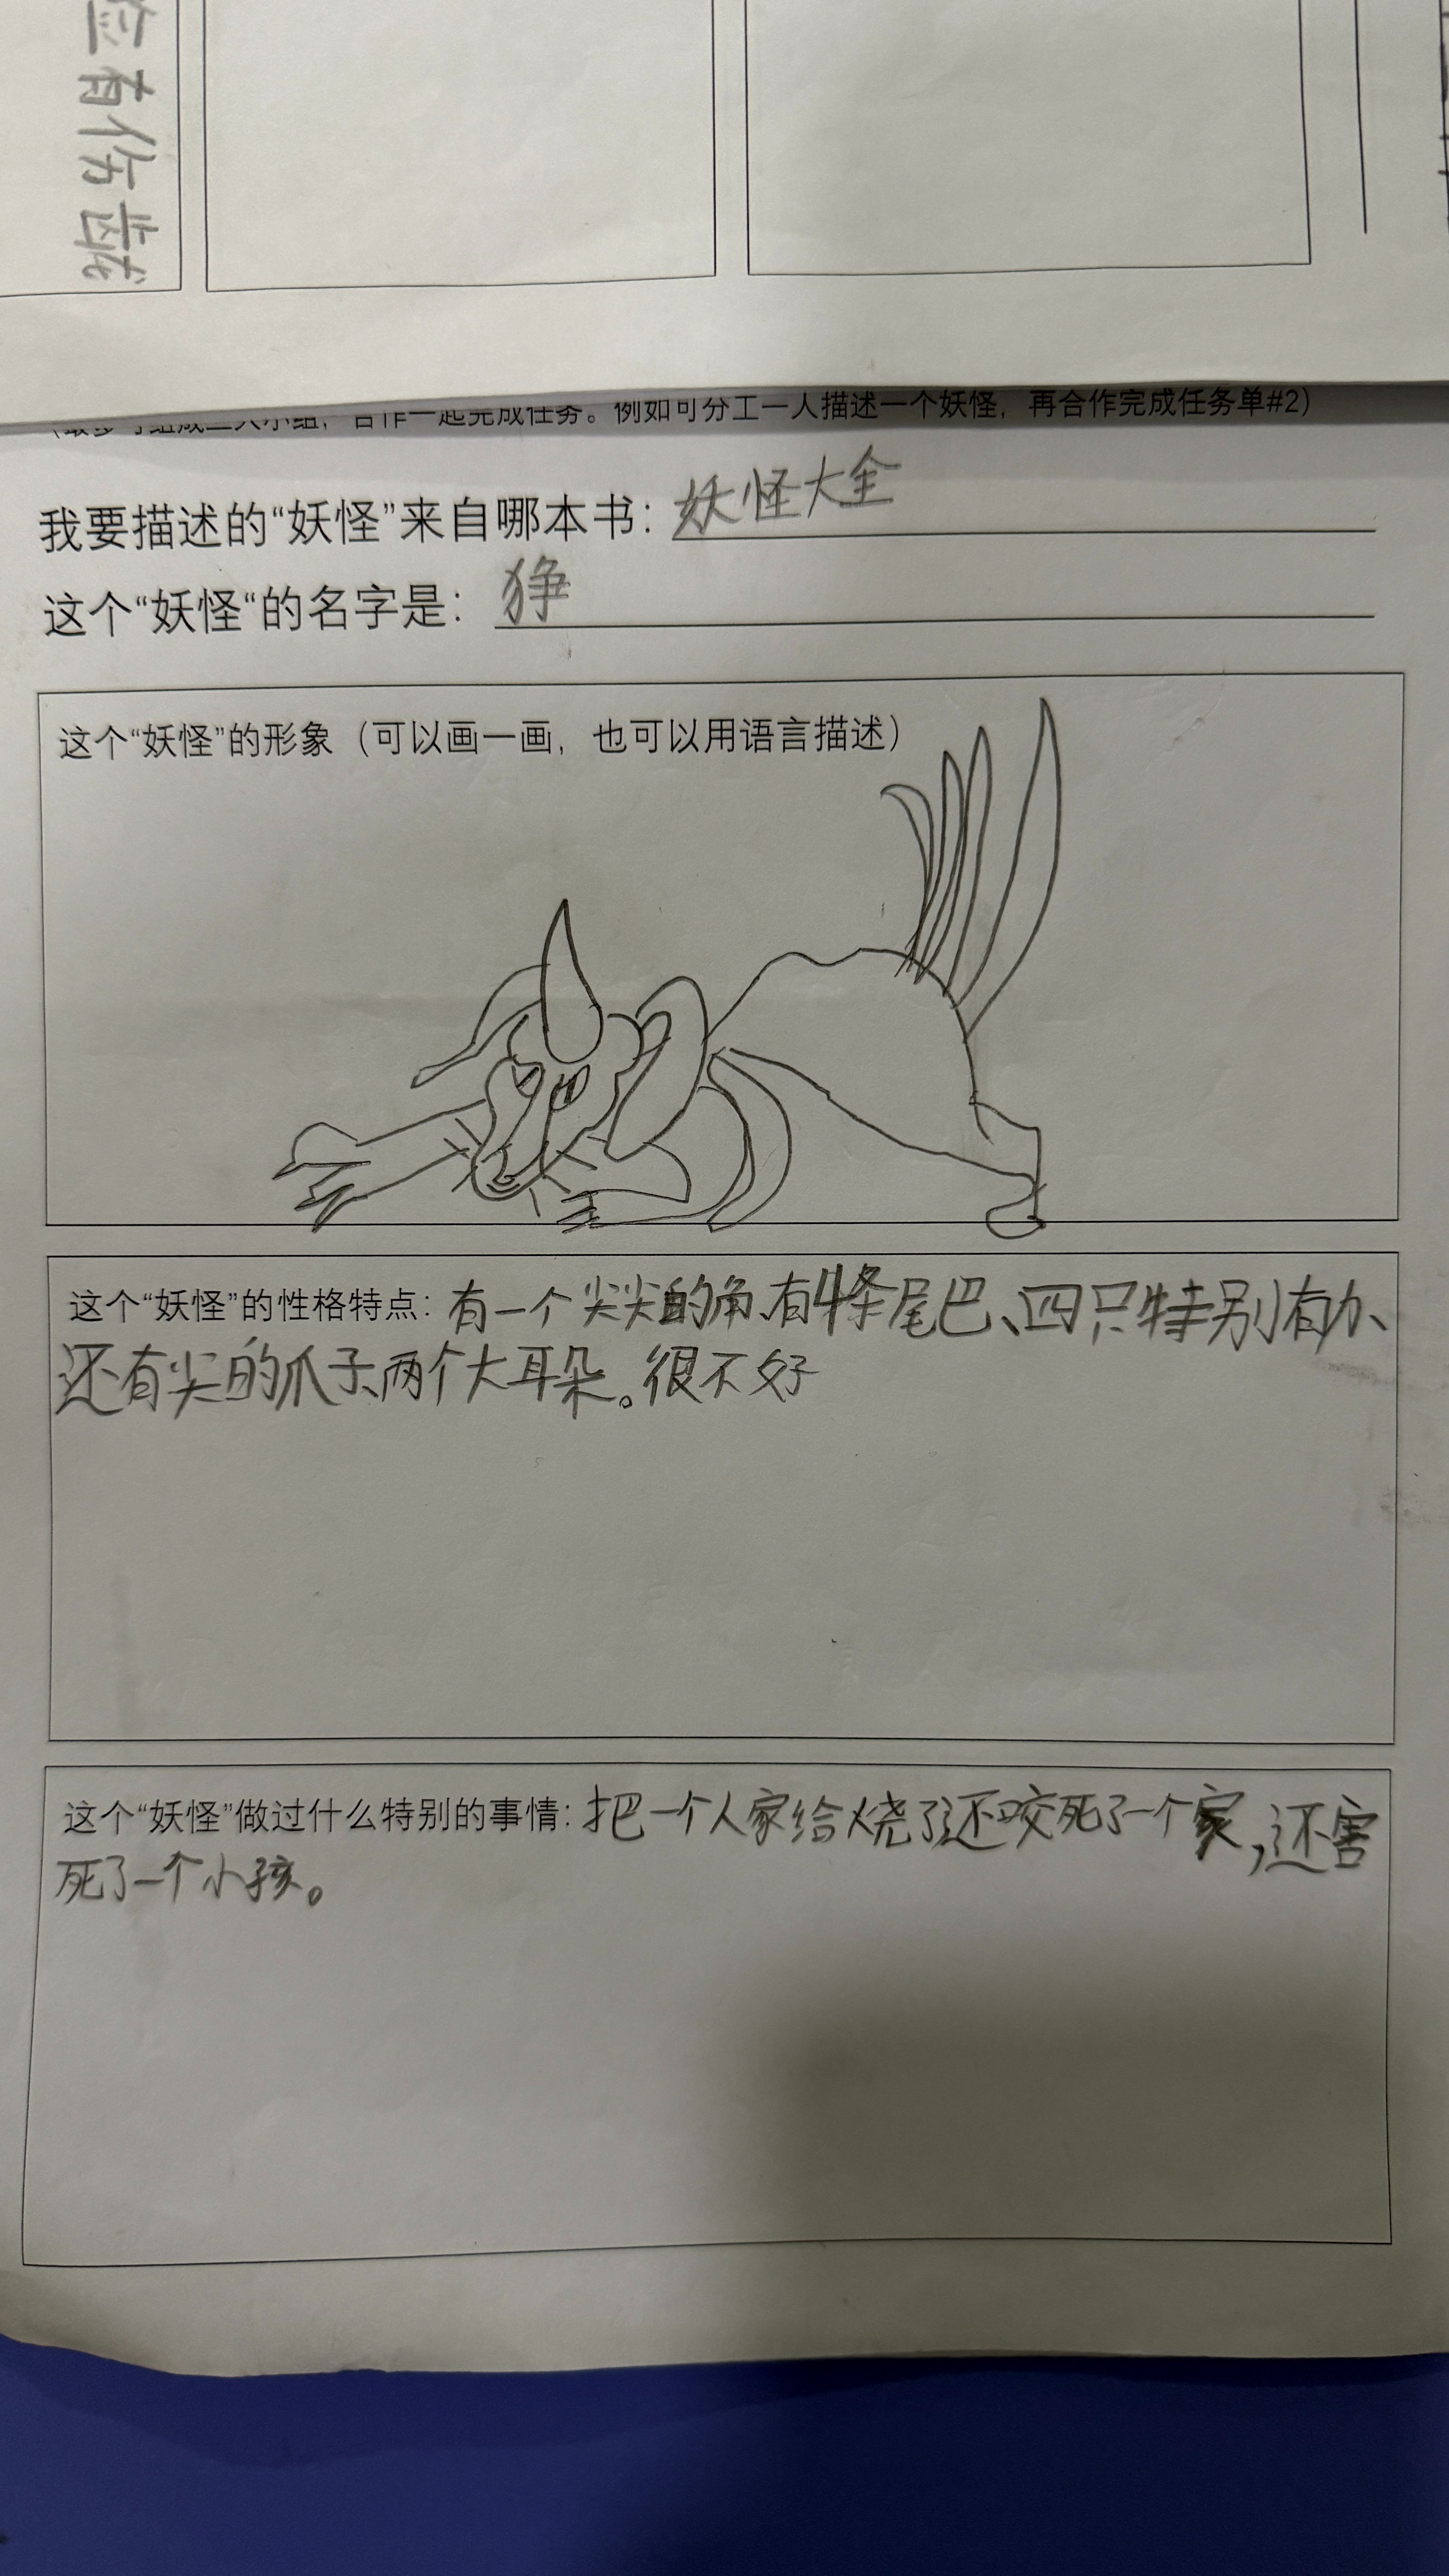 有
（最多可组成三人小组，合作一起完成任务。例如可分工一人描述一个妖怪，再合作完成任务单#2）
我要描述的“妖怪”来自哪本书：妖怪大全
这个“妖怪“的名字是：狰
这个“妖怪”的形象（可以画一画，也可以用语言描述）
这个“妖怪”的性格特点：有一个尖尖的角、有条尾巴、四只特别有力、
还有尖的爪子、两个大耳朵。很不好
这个“妖怪”做过什么特别的事情：把一个人家给烧了还咬死了一个家，还害
死了一个小孩。